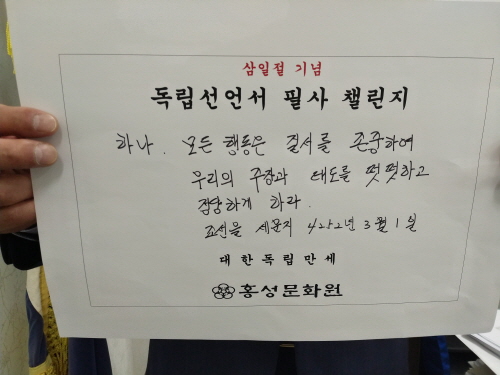 삼일절 기념
독립선언서 필사 챌린지
하나. 모든 행동은 질서를 존중하여
우리의 주장과 태도를 떳떳하고
정당하게 하라.
조선을 세운지 4252년 3월 1일
대한독립만세
홍성문화원